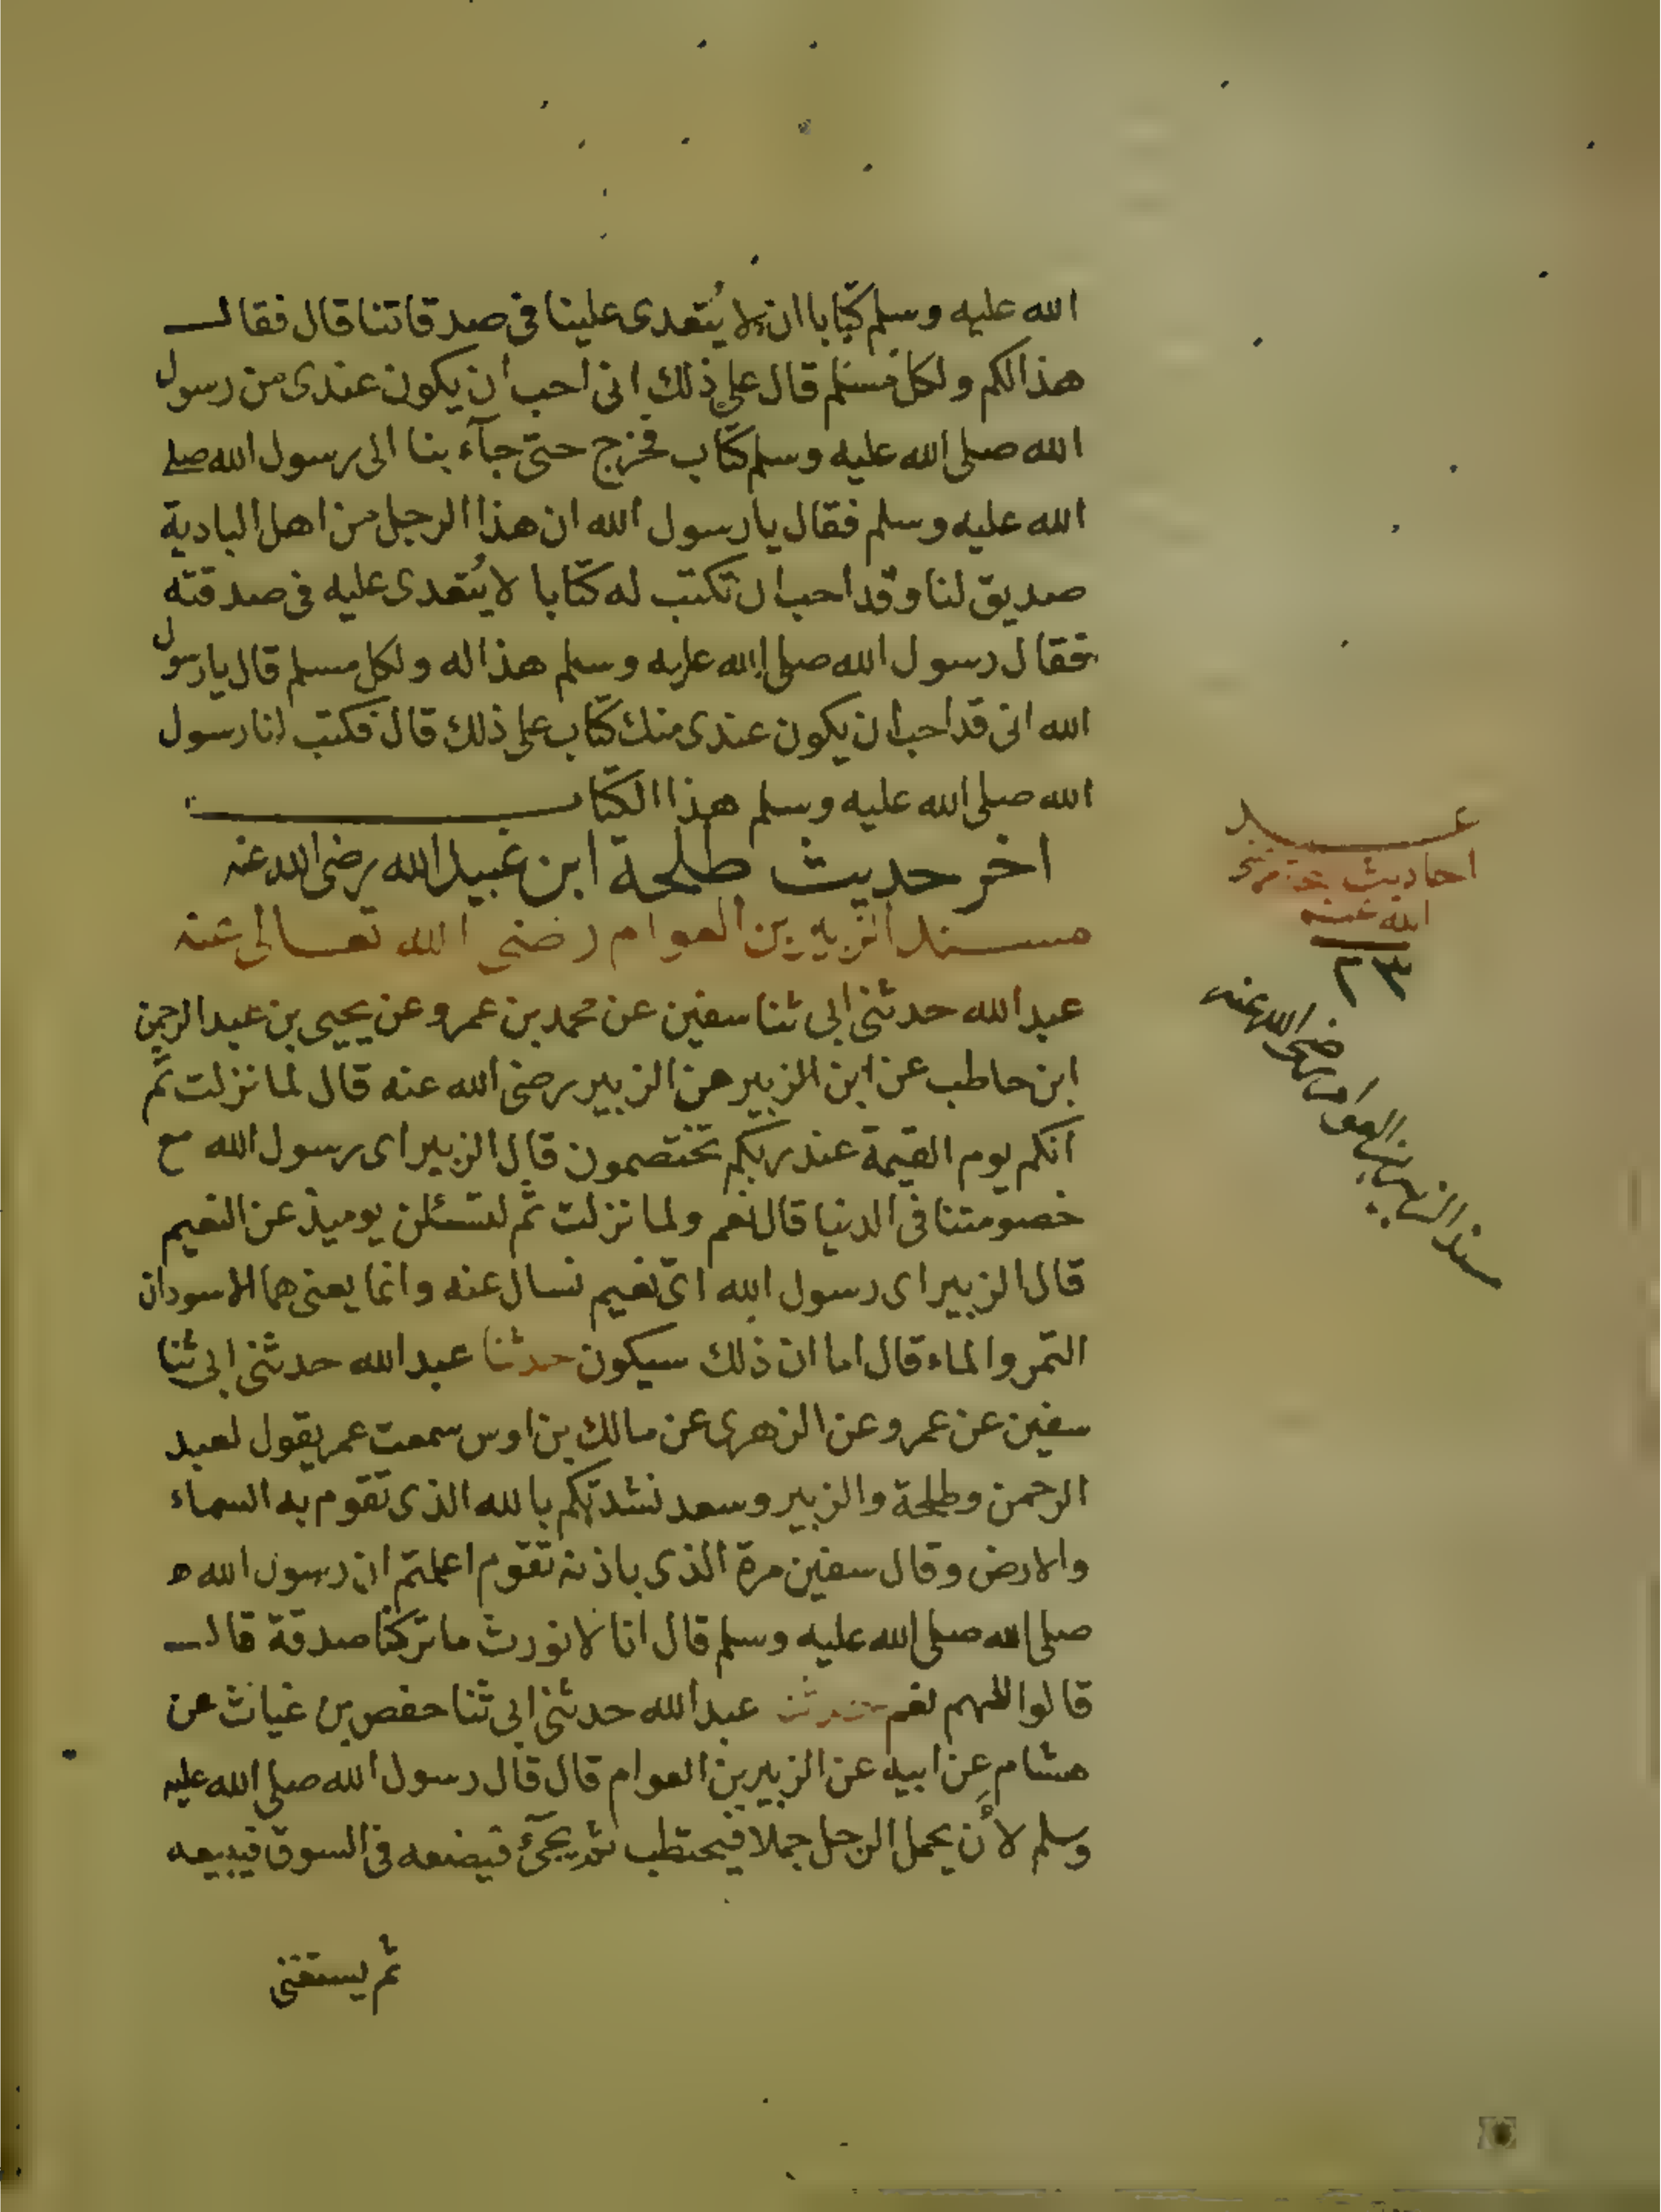 الله عليه وسلم كتابا ان لا يُتعدى علينا في صدقاتنا قال فقال
هذا لكم ولكل مسلم قال على ذلك اني احب ان يكون عندي من رسول
الله صلى الله عليه وسلم كتاب فخرج حتى جآء بنا الى رسول الله صلى
الله عليه وسلم فقال يا رسول الله ان هذا الرجل من اهل البادية
صديق لنا وقد احب ان تكتب له كتابا لا يُتعدى عليه في صدقته
فقال رسول الله صلى الله عليه وسلم هذا له ولكل مسلم قال يا رسول
الله اني قد احب ان يكون عندي منك كتاب على ذلك قال فكتب لنا رسول
الله صلى الله عليه وسلم هذا الكتاب
اخر حديث طلحة ابن عبيد الله رضي الله عنه
مسند الزبير بن العوام رضي الله تعالى عنه
عبد الله حدثني ابي ثنا سفين عن محمد بن عمرو عن يحيى بن عبد الرحمن
ابن حاطب عن ابن الزبير عن الزبير رضي الله عنه قال لما نزلت ثم
انكم يوم القيمة عند ربكم تختصمون قال الزبير اي رسول الله مع
خصومتنا في الدنيا قال نعم ولما نزلت ثم لتسئلن يوميذ عن النعيم
قال الزبير اي رسول الله اىّ نعيم نسال عنه وانما يعني هما الاسودان
التمر والماء قال اما ان ذلك سيكون حدثنا عبد الله حدثني ابي ثنا
سفين عن عمرو عن الزهري عن مالك بن اوس سمعت عمر يقول لعبد
الرحمن وطلحة والزبير وسعد نشدتكم بالله الذي تقوم به السماء
والارض وقال سفين مرة الذي باذنه تقوم اعلمتم ان رسول الله
صلى الله صلى الله عليه وسلم قال انا لا نورث ما تركنا صدقة قال
قالوا اللهم نعم حدثنا عبد الله حدثني ابي ثنا حفص بن غياث عن
هشام عن ابيه عن الزبير بن العوام قال قال رسول الله صلى الله عليه
وسلم لأن يحمل الرجل حبلا فيحتطب ثم يجئ فيضعه في السوق فيبيعه
ثم يستغني
احاديث
الله عنه
٢٣
مسند الزبير بن العوام رضي الله عنه